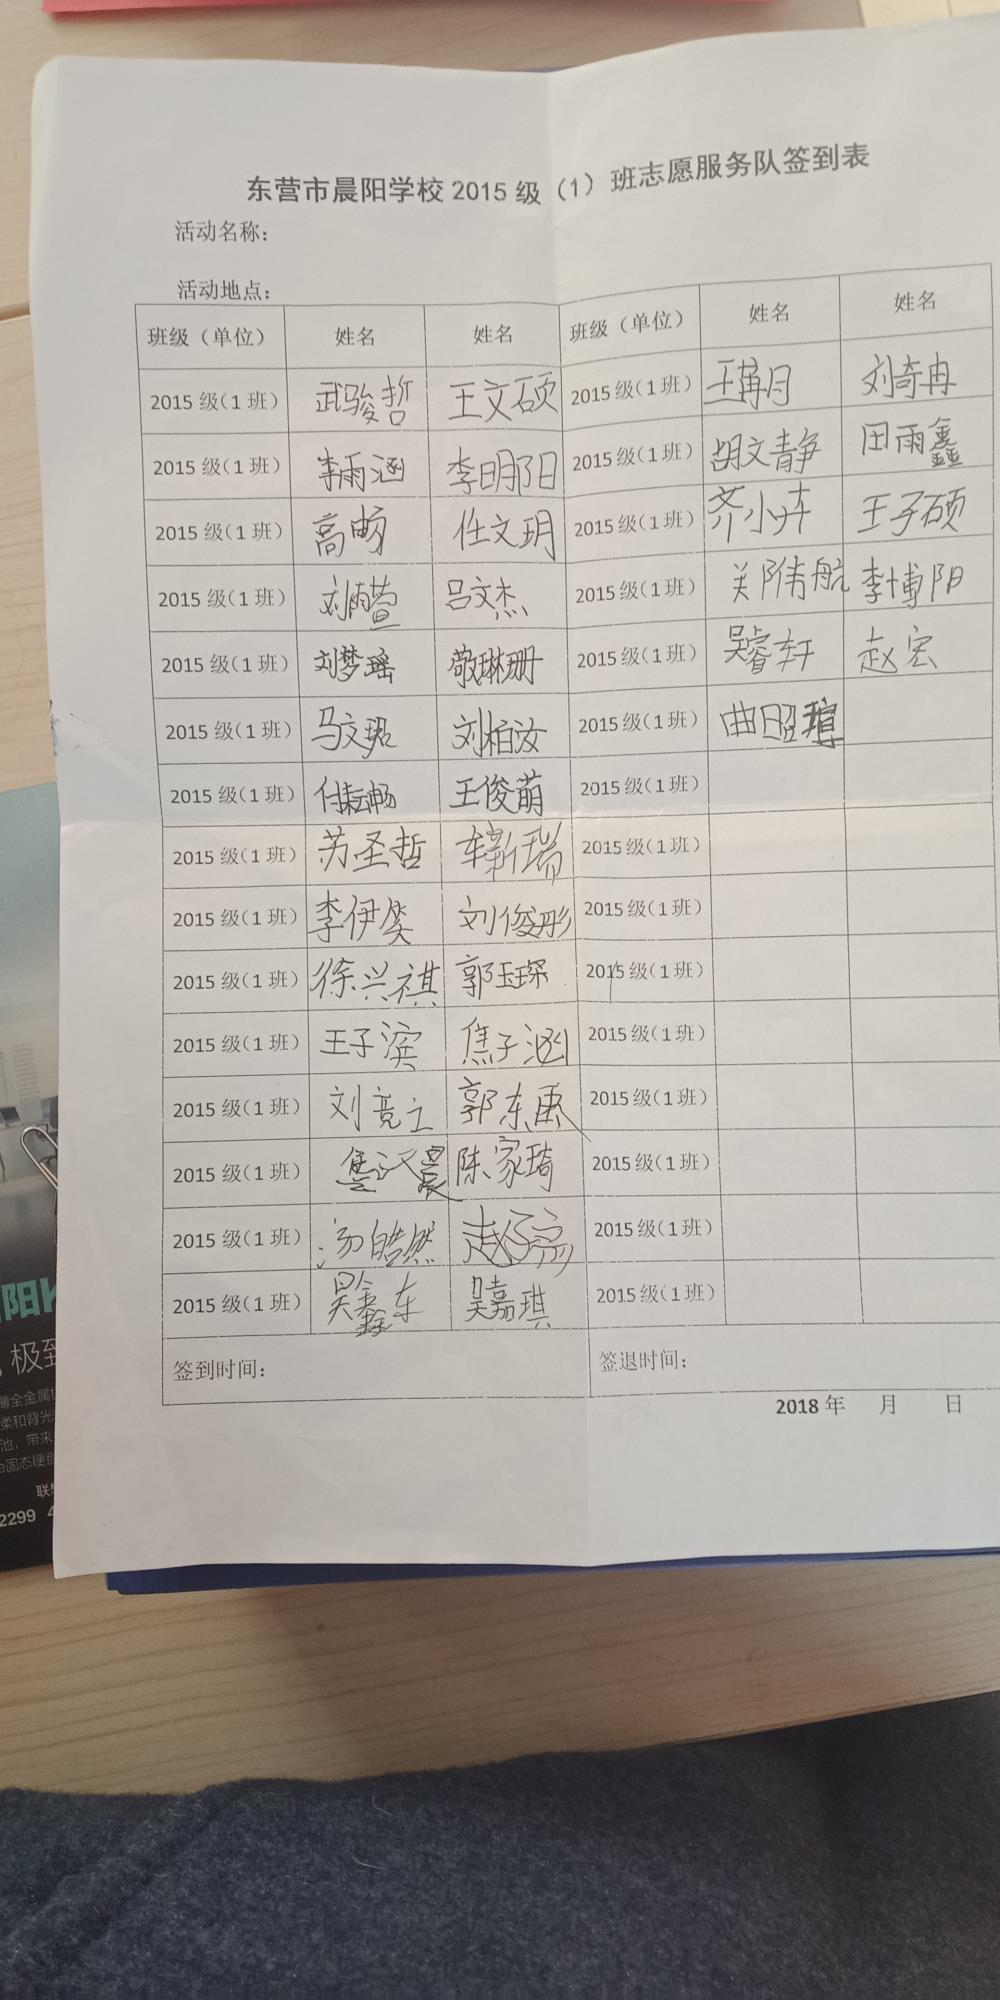 东营市晨阳学校 2015 级（1）班志愿服务队签到表
活动名称：
活动地点：
班级（单位） 姓名 姓名 班级（单位） 姓名 姓名
2015 级（1 班） 武骏哲 王文硕 2015 级（1 班） 王苒月 刘奇冉
2015 级（1 班） 李雨涵 李明阳 2015 级（1 班） 胡文静 田雨鑫
2015 级（1 班） 高畅 任文玥 2015 级（1 班） 齐小卉 王子硕
2015 级（1 班） 刘雨萱 吕文杰 2015 级（1 班） 关附航 李博阳
2015 级（1 班） 刘梦瑶 敬琳珊 2015 级（1 班） 吴睿轩 赵宏
2015 级（1 班） 马文珺 刘柏汝 2015 级（1 班） 曲昭
2015 级（1 班） 付耘畅 王俊萌 2015 级（1 班）
2015 级（1 班） 苏圣哲 车新瑞 2015 级（1 班）
2015 级（1 班） 李伊笑 刘俊彤 2015 级（1 班）
2015 级（1 班） 徐兴祺 郭玉琛 2015 级（1 班）
2015 级（1 班） 王子滨 焦子涵 2015 级（1 班）
2015 级（1 班） 刘竞立 郭东禹 2015 级（1 班）
2015 级（1 班） 陈家琦 2015 级（1 班）
2015 级（1 班） 汤皓然 赵 2015 级（1 班）
2015 级（1 班） 吴鑫东 吴嘉琪 2015 级（1 班）
签到时间： 签退时间：
2018 年 月 日
阳
极至
薄全金属
柔和背光
池，带来
e固态硬盘
联
2299 4